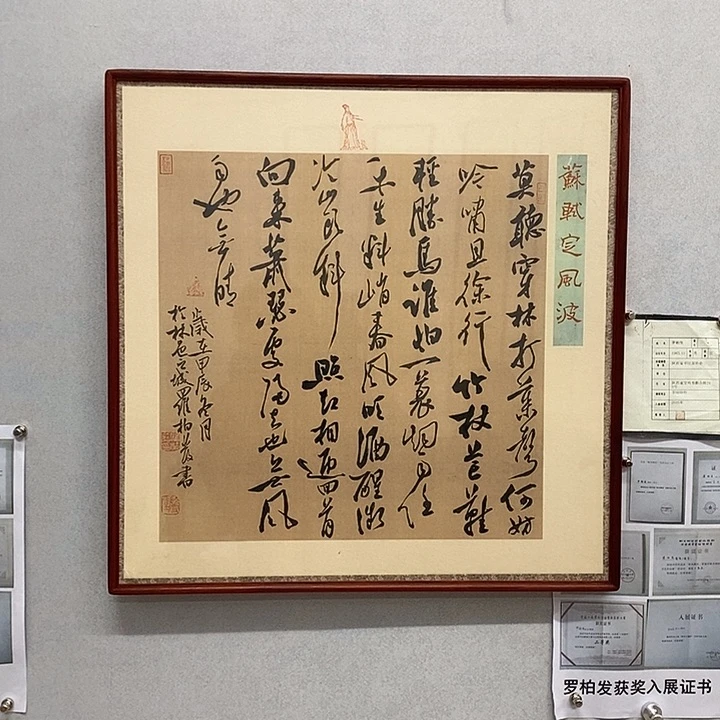 蘇軾定風波
莫聽穿林打葉聲何妨
吟嘯且徐行竹杖芒鞋
輕勝馬誰怕一蓑烟雨任
平生料峭春風吹酒醒微
冷山頭斜照却相迎回首
向來蕭瑟處歸去也無風
雨也無晴
歲在甲辰冬月
於林邑之城羅柏發書
入展证书
罗柏发获奖入展证书